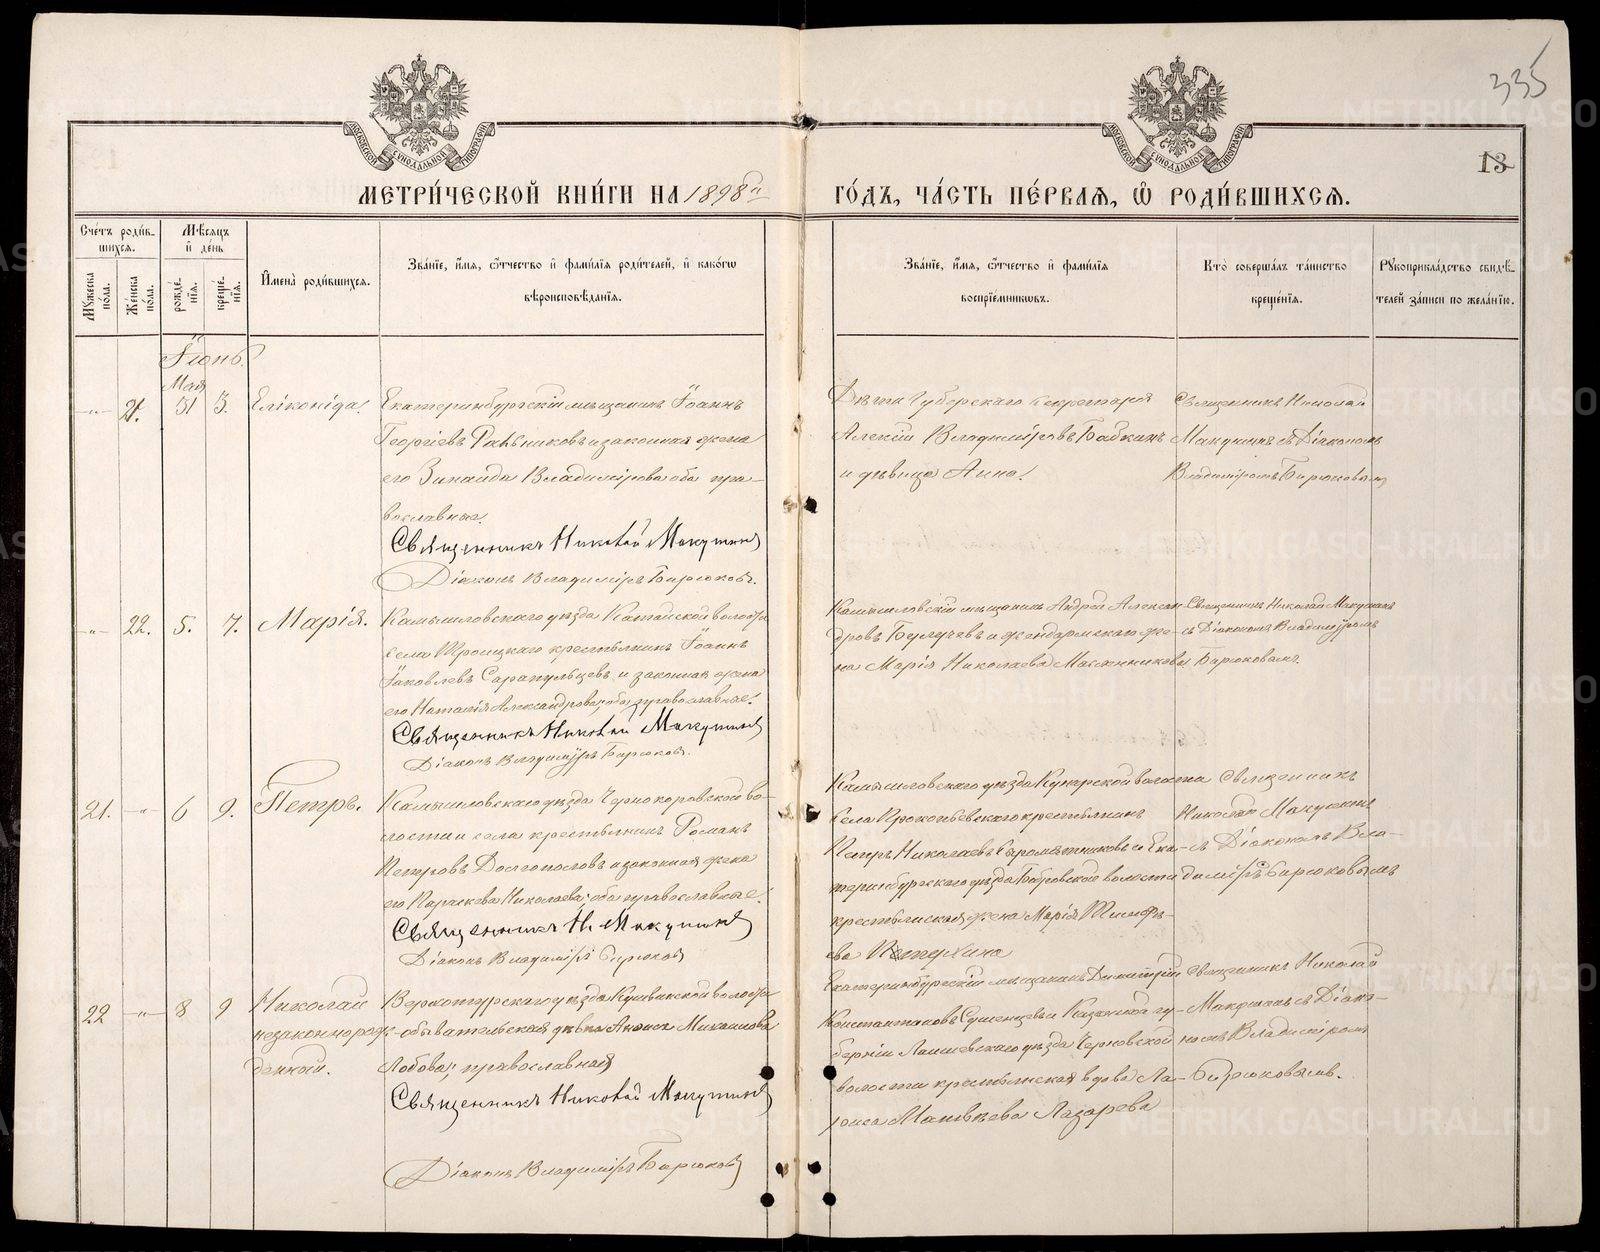 335
13
МОСКОВСКОЙ СѴНОДАЛЬНОЙ ТИПОГРАФІИ
МОСКОВСКОЙ СѴНОДАЛЬНОЙ ТИПОГРАФІИ
МЕТРИ́ЧЕСКОЙ КНИ́ГИ НА 1898й
ГО́ДЪ, ЧА́СТЬ ПЕ́РВАѦ, Ѡ҆ РОДИ́ВШИХСѦ.
Сче́тъ роди́в-
шихсѧ.
Мꙋ́жеска по́ла.
Же́нска по́ла.
Мѣ́сѧцъ
и҆ де́нь
рожде́-
нїѧ.
креще́-
нїѧ.
И҆мена̀ роди́вшихсѧ.
Зва́нїе, и҆́мѧ, ѻ҆́тчество и҆ фами́лїѧ роди́телей, и҆ како́гѡ
вѣроисповѣ́данїѧ.
Зва́нїе, и҆́мѧ, ѻ҆́тчество и҆ фами́лїѧ
воспрїе́мникѡвъ.
Кто̀ соверша́лъ та́инство
креще́нїѧ.
Рꙋкоприкла́дство свидѣ́-
телей за́писи по жела́нїю.
Іюнь
Мая
-"- 21. 31 3. Еликонида.
Екатеринбургскій мѣщанинъ Іоаннъ
Георгіевъ и законная жена
его Зинаида Владимірова оба пра-
вославные.
Священникъ Николай Макушинъ
Діаконъ Владиміръ Бирюковъ.
Дѣти Губернскаго Секретаря
Алексій Владиміровъ Бабкинъ
и дѣвица Анна.
Священникъ Николай
Макушинъ съ Діакономъ
Владиміромъ Бирюковымъ
-"- 22. 5. 7. Марія.
Камышловскаго уѣзда Катайской волости
села Троицкаго крестьянинъ Іоаннъ
Іаковлевъ Сарапульцевъ и законная жена
его Наталія Александрова, оба православные.
Священникъ Николай Макушинъ
Діаконъ Владиміръ Бирюковъ.
Камышловскій мѣщанинъ Андрей Алексан-
дровъ и жандармскаго же-
на Марія Николаева Масленникова
Священникъ Николай Макушинъ
съ Діакономъ Владиміромъ
Бирюковымъ.
21. -"- 6 9. Петръ.
Камышловскаго уѣзда Чернокоровской во-
лости и села крестьянинъ Романъ
Петровъ Долгополовъ и законная жена
его Параскева Николаева; оба православные.
Священникъ Н. Макушинъ
Діаконъ Владиміръ Бирюковъ
Камышловскаго уѣзда волости
села Прокопьевскаго крестьянинъ
Петръ Николаевъ Сыромятниковъ и Ека-
теринбургскаго уѣзда Бобровской волости
крестьянская жена Марія Тимофѣ-
ева Петухина
Священникъ
Николай Макушинъ
съ Діакономъ Вла-
диміромъ Бирюковымъ
22 -"- 8 9 Николай
незаконнорож-
денный.
Верхотурскаго уѣзда Кушвинской волости
обывательская дѣвка Анѳиса Михайлова
Лобова; православная
Священникъ Николай Макушинъ
Діаконъ Владиміръ Бирюковъ
Екатеринбургскій мѣщанинъ Димитрій
Константиновъ Сушенцевъ и Казанской гу-
берніи Лаишевскаго уѣзда Черповской
волости крестьянская вдова Ла-
риса Матвѣева Лазарева
Священникъ Николай
Макушинъ съ Діако-
номъ Владиміромъ
Бирюковымъ.